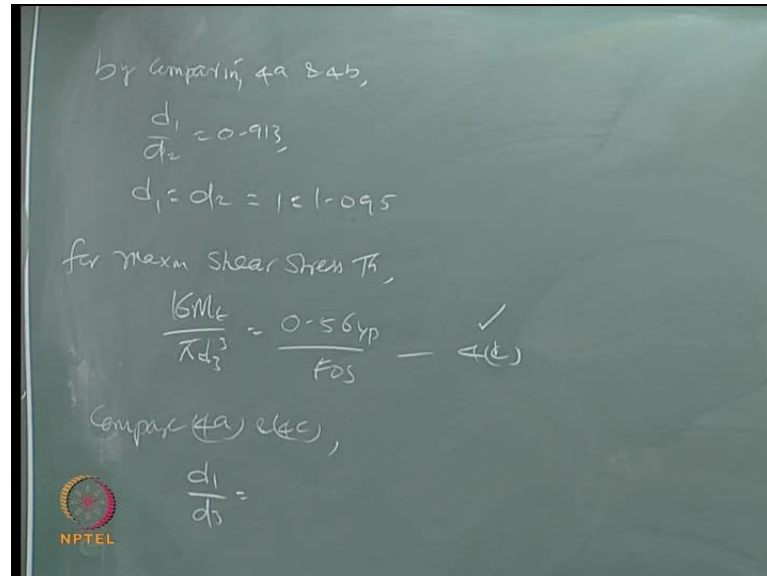 by comparin, 4a & 4b,
d₁/d₂ = 0.913,
d₁ = d₂ = 1 : 1.095
for maxm shear stress Th,
16Mt/πd₃³ = 0.5σyp/FOS — 4(c) ✓
Compare (4a) & (4c),
d₁/d₃ =
NPTEL